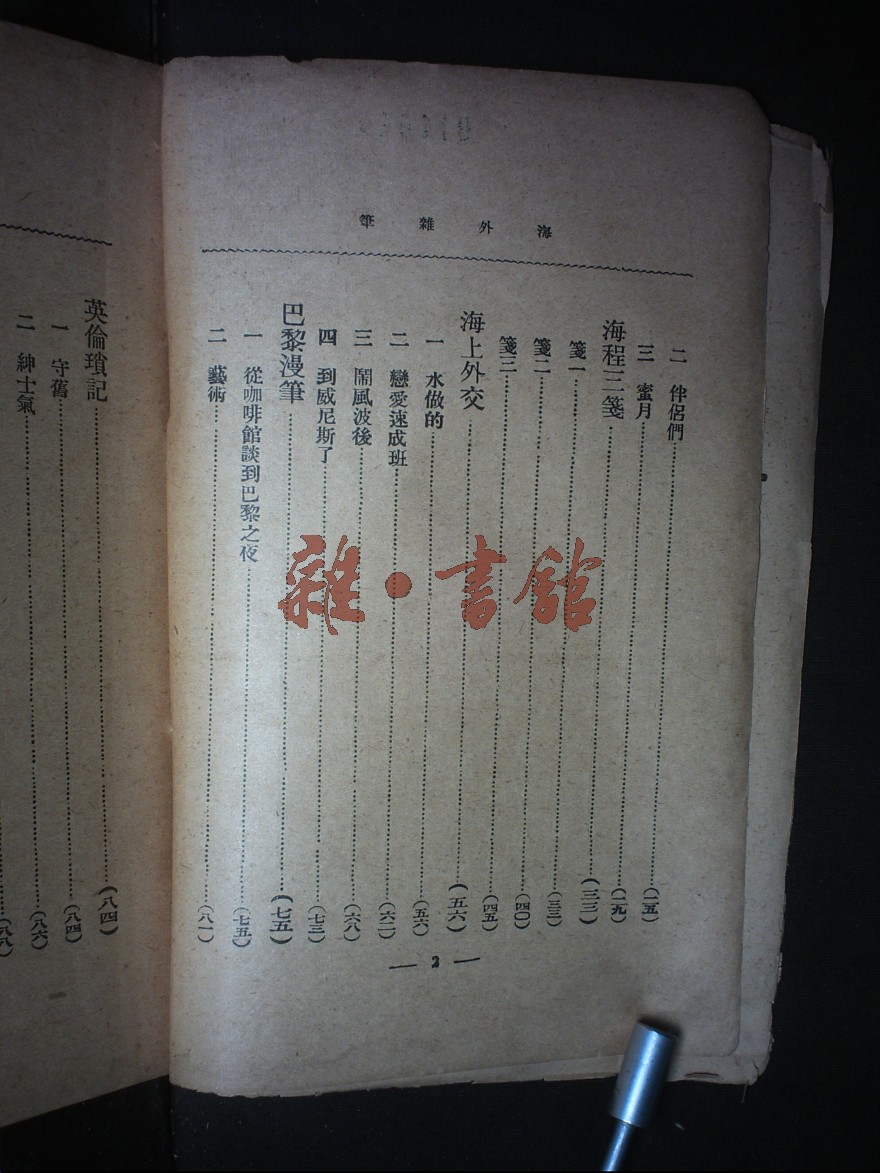 海外雜筆
二 伴侶們……(一五)
三 蜜月……(一九)
海程三箋……(三三)
箋一……(三三)
箋二……(四〇)
箋三……(四五)
海上外交……(五六)
一 水做的……(五六)
二 戀愛速成班……(六二)
三 鬧風波後……(六八)
四 到威尼斯了……(七三)
巴黎漫筆……(七五)
一 從咖啡館談到巴黎之夜……(七五)
二 藝術……(八一)
— 2 —
英倫瑣記……(八四)
一 守舊……(八四)
二 紳士氣……(八六)
……(八八)
雜·書館